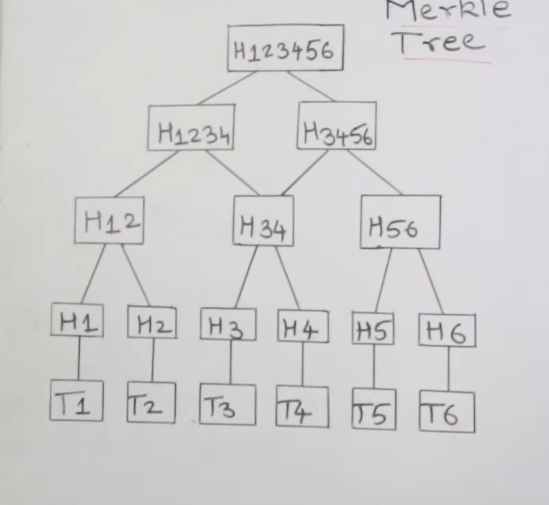 Merkle
Tree
H123456
H1234 H3456
H12 H34 H56
H1 H2 H3 H4 H5 H6
T1 T2 T3 T4 T5 T6